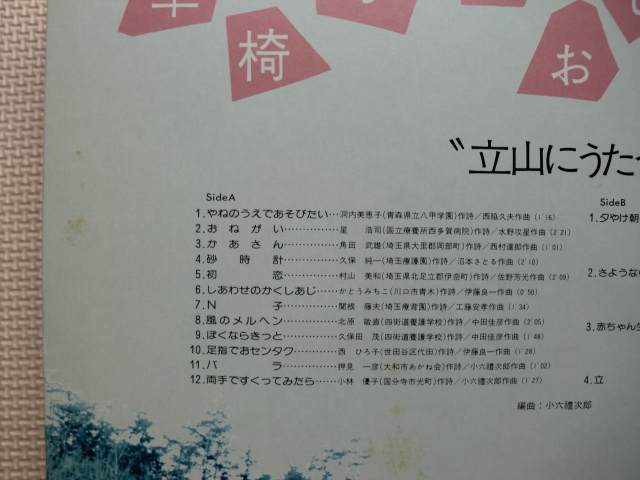 椅
お
〝立山にうた
Side A
1.やねのうえであそびたい…洞内美恵子(青森県立八甲学園)作詩/西脇久夫作曲(1'16)
2.おねがい…星 浩司(国立療養所西多賀病院)作詩/水野攻星作曲(2'21)
3.かあさん…角田 武雄(埼玉県大里郡岡部町)作詩/西村達郎作曲(1'01)
4.砂時計…久保 純一(埼玉療護園)作詩/沼本さとる作曲(2'10)
5.初恋…村山 美和(埼玉県北足立郡伊奈町)作詩/佐野芳光作曲(2'09)
6.しあわせのかくしあじ…かとうみちこ(川口市青木)作詩/伊藤良一作曲(0'50)
7.N子…関根 藤夫(埼玉療育園)作詩/工藤安孝作曲(1'34)
8.風のメルヘン…北原 敏直(四街道養護学校)作詩/中田佳彦作曲(2'05)
9.ぼくならきっと…久保田 茂(四街道養護学校)作詩/中田佳彦作曲(1'48)
10.足指でおセンタク…西 ひろ子(世田谷区代田)作詩/伊藤良一作曲(1'28)
11.バラ…押見 一彦(大和市あかね会)作詩/小六禮次郎作曲(1'02)
12.両手ですくってみたら…小林 優子(国分寺市光町)作詩/小六禮次郎作曲(1'27)
編曲：小六禮次郎
Side B
1.夕やけ朝
2.さような
3.赤ちゃん
4.立